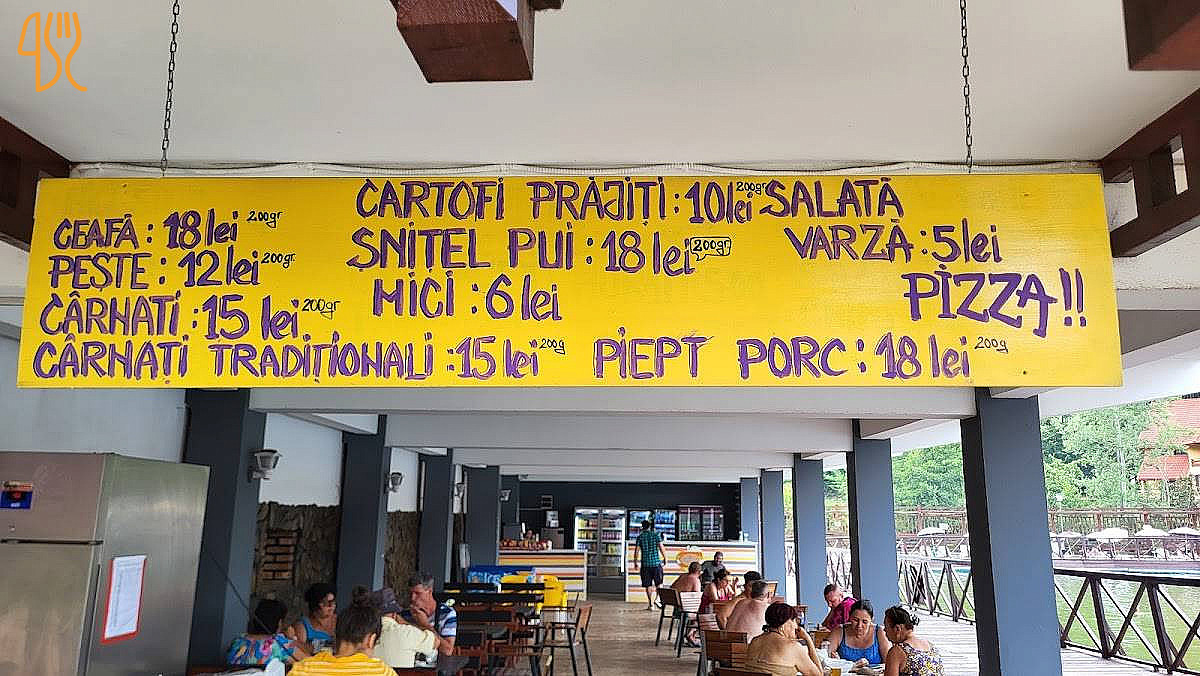 CEAFĂ : 18 lei 200gr
PEȘTE : 12 lei 200gr
CÂRNAȚI : 15 lei 200gr
CÂRNAȚI TRADIȚIONALI : 15 lei 200g
CARTOFI PRĂJIȚI : 10 lei 200gr
ȘNIȚEL PUI : 18 lei 200gr
MICI : 6 lei
PIEPT PORC : 18 lei 200g
SALATĂ
VARZĂ : 5 lei
PIZZA !!